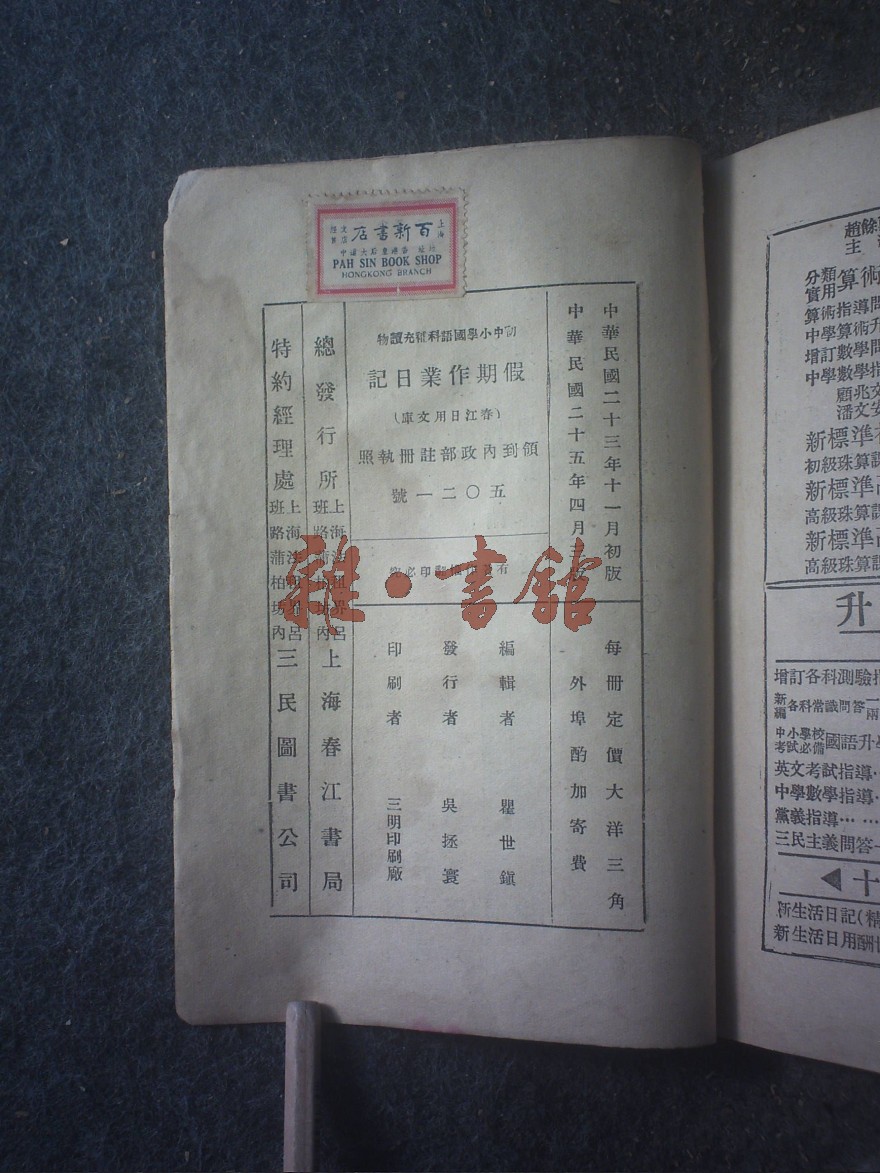 上海
百新書店
文儀
PAH SIN BOOK SHOP
HONGKONG BRANCH
中華民國二十三年十一月初版
中華民國二十五年四月三版
初中小學國語科補充讀物
假期作業日記
(春江日用文庫)
領到內政部註冊執照
五〇二一號
有著作權翻印必究
每冊定價大洋三角
外埠酌加寄費
編輯者 瞿世鎮
發行者 吳拯寰
印刷者 三明印刷廠
總發行所 上海法租界呂班路蒲柏坊內 上海春江書局
特約經理處 上海法租界呂班路蒲柏坊內 三民圖書公司
雜·書館
趙餘
主
分類實用算術
算術指導問
中學算術升
增訂數學問
中學數學指
顧兆文
潘文安
新標準
初級珠算課
新標準高
高級珠算課
新標準高
高級珠算課
升
增訂各科測驗指
新編各科常識問答一兩
中小學校考試必備國語升學
英文考試指導…
中學數學指導…
黨義指導……
三民主義問答
◀十
新生活日記(精
新生活日用酬世